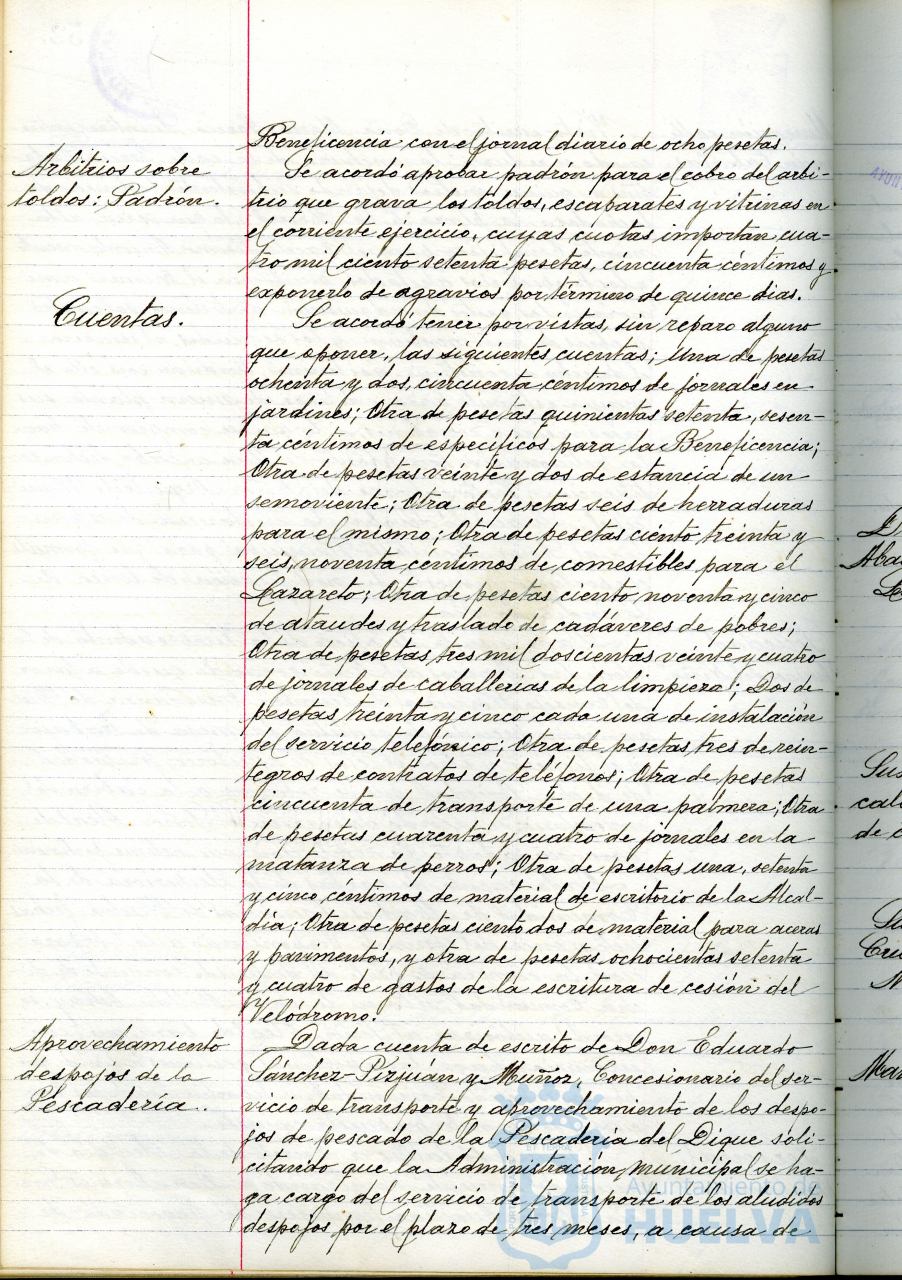 Beneficencia con el jornal diario de ocho pesetas.
Arbitrios sobre
toldos: Padrón.
Se acordó aprobar padrón para el cobro del arbi-
trio que grava los toldos, escabarates y vitrinas en
el corriente ejercicio, cuyas cuotas importan cua-
tro mil ciento setenta pesetas, cincuenta céntimos y
exponerlo de agravios por término de quince dias.
Cuentas.
Se acordó tener por vistas, sin reparo alguno
que oponer, las siguientes cuentas; Una de pesetas
ochenta y dos, cincuenta céntimos de jornales en
jardines; Otra de pesetas quinientas setenta, sesen-
ta céntimos de específicos para la Beneficencia;
Otra de pesetas veinte y dos de estancia de un
semoviente; Otra de pesetas seis de herraduras
para el mismo; Otra de pesetas ciento treinta y
seis, noventa céntimos de comestibles para el
Lazareto; Otra de pesetas ciento noventa y cinco
de ataudes y traslado de cadáveres de pobres;
Otra de pesetas tres mil doscientas veinte y cuatro
de jornales de caballerias de la limpieza; Dos de
pesetas treinta y cinco cada una de instalación
del servicio telefónico; Otra de pesetas tres de rein-
tegros de contratos de teléfonos; Otra de pesetas
cincuenta de transporte de una palmera; Otra
de pesetas cuarenta y cuatro de jornales en la
matanza de perros; Otra de pesetas una, setenta
y cinco céntimos de material de escritorio de la Alcal-
día; Otra de pesetas ciento dos de material para aceras
y pavimentos, y otra de pesetas ochocientas setenta
y cuatro de gastos de la escritura de cesión del
Velódromo.
Aprovechamiento
despojos de la
Pescadería.
Dada cuenta de escrito de Don Eduardo
Sánchez-Pizjuán y Muñoz, Concesionario del ser-
vicio de transporte y aprovechamiento de los despo-
jos de pescado de la Pescadería del Dique soli-
citando que la Administracion municipal se ha-
ga cargo del servicio de transporte de los aludidos
despojos por el plazo de tres meses, a causa de
Ayuntamiento de
HUELVA